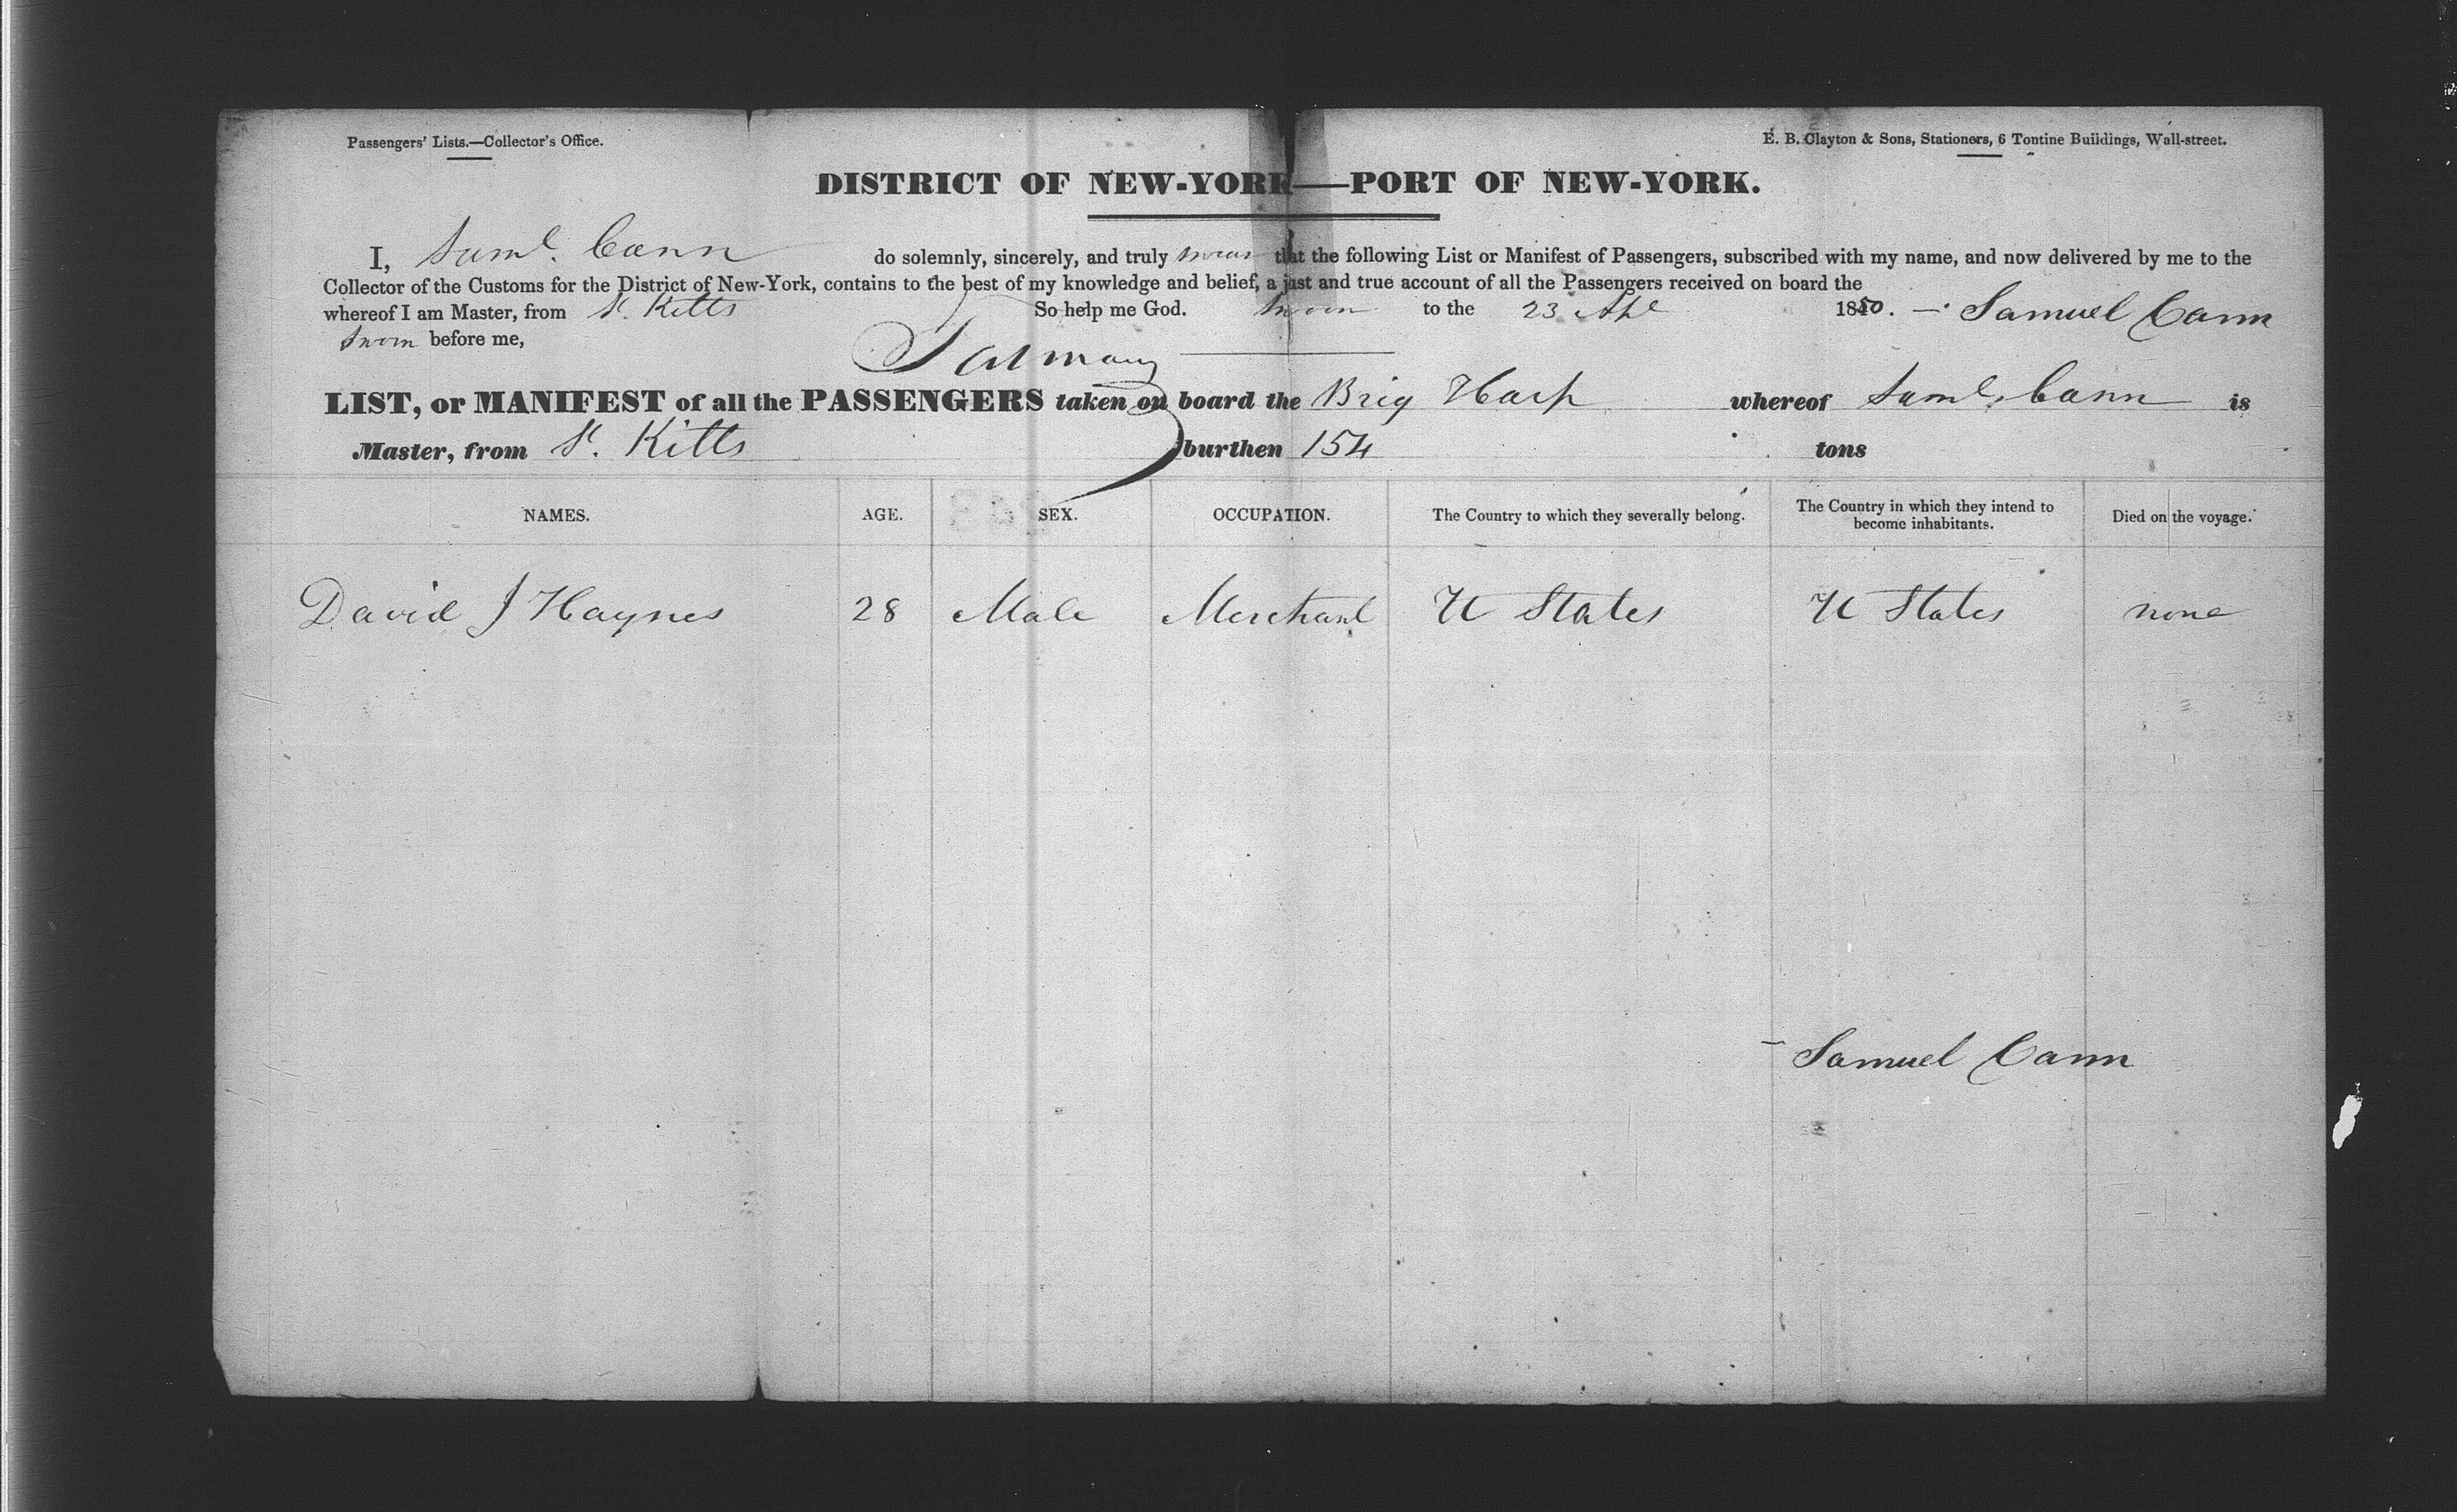 Passengers' Lists.—Collector's Office.
E. B. Clayton & Sons, Stationers, 6 Tontine Buildings, Wall-street.
DISTRICT OF NEW-YORK—PORT OF NEW-YORK.
I, Saml. Cann do solemnly, sincerely, and truly swear that the following List or Manifest of Passengers, subscribed with my name, and now delivered by me to the
Collector of the Customs for the District of New-York, contains to the best of my knowledge and belief, a just and true account of all the Passengers received on board the
whereof I am Master, from St. Kitts So help me God. Sworn to the 23 Apl 1850. — Samuel Cann
Sworn before me,
LIST, or MANIFEST of all the PASSENGERS taken on board the Brig Harp whereof Saml. Cann is
Master, from St. Kitts burthen 154 tons
NAMES. AGE. SEX. OCCUPATION. The Country to which they severally belong. The Country in which they intend to become inhabitants. Died on the voyage.
David J Haynes 28 Male Merchant U States U States none
Samuel Cann